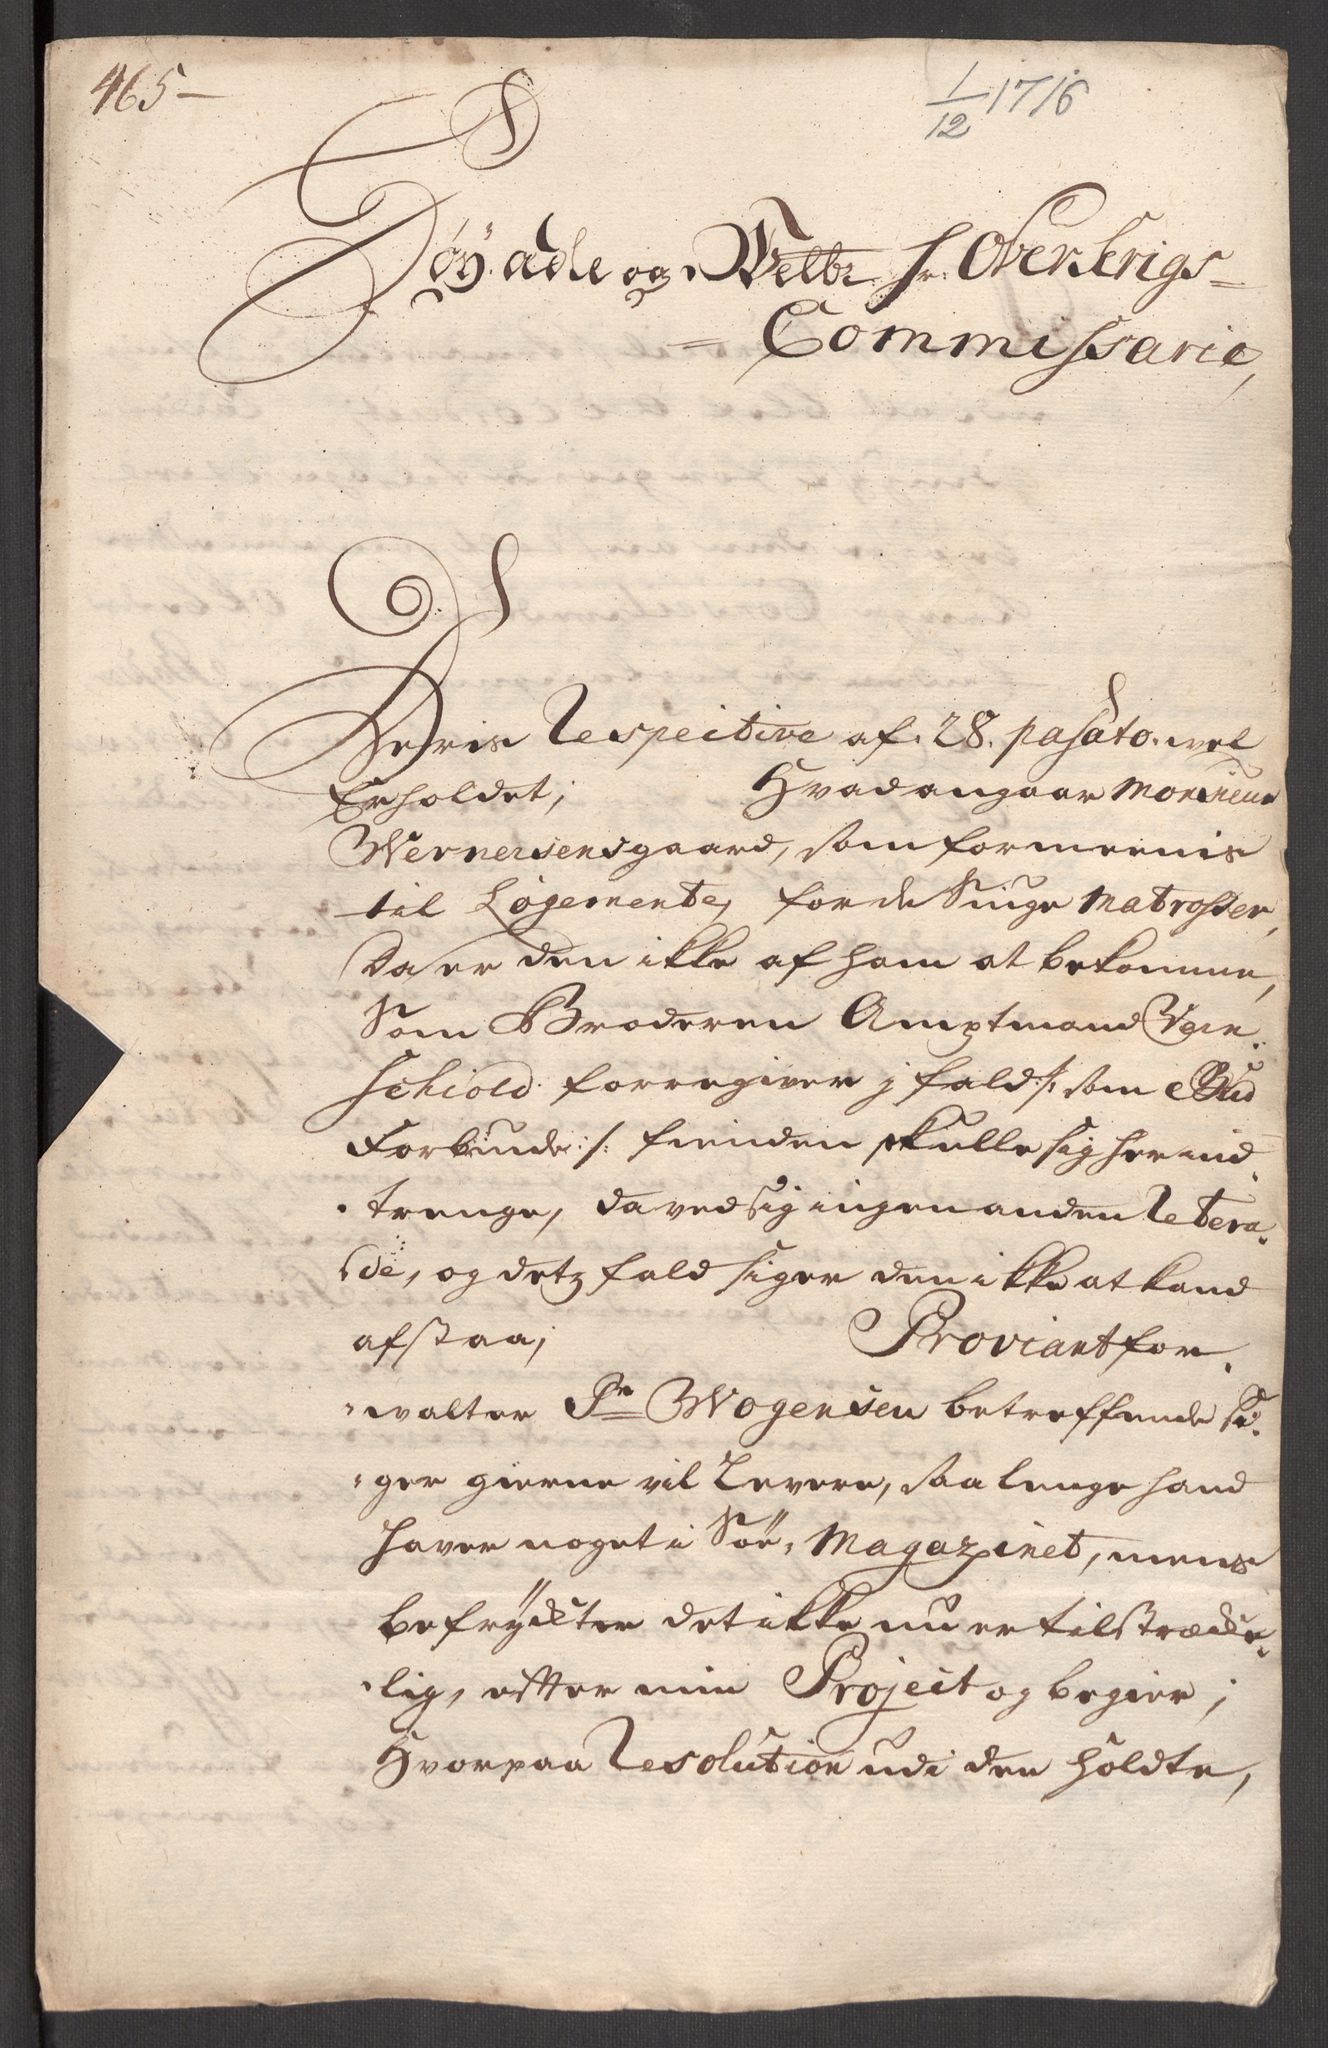 465-
1/12 1716
Høÿ. ædle og Welbr. Hr. Oberkrigs=
=Commissarie,
Deris Respective af. 28. passato. wel
Erholdet; Hvad angaar Monsieur
Wernersens gaard, som formeenis
til Logemente, for de Siuge Matrosser,
Da er den ikke af ham at bekomme,
Som Broderen Amptmand
Schiold. forregiver j fald /: som Gud
Forbiude :/ fienden skulle sig her ind.
.trenge, da ved sig ingen anden Retera.
de, og detz fald siger den ikke at kand
afstaa; Proviant for.
walter Pr Wogensen betreffende Si.
ger gierne vil Levere, saa lenge hand
haver noget i Søe, Magazinet, mens
befrÿckter det ikke nu er tilstræcke.
.lig, efter min Project og begier;
Hvorpaa Resolution udi den holdte,